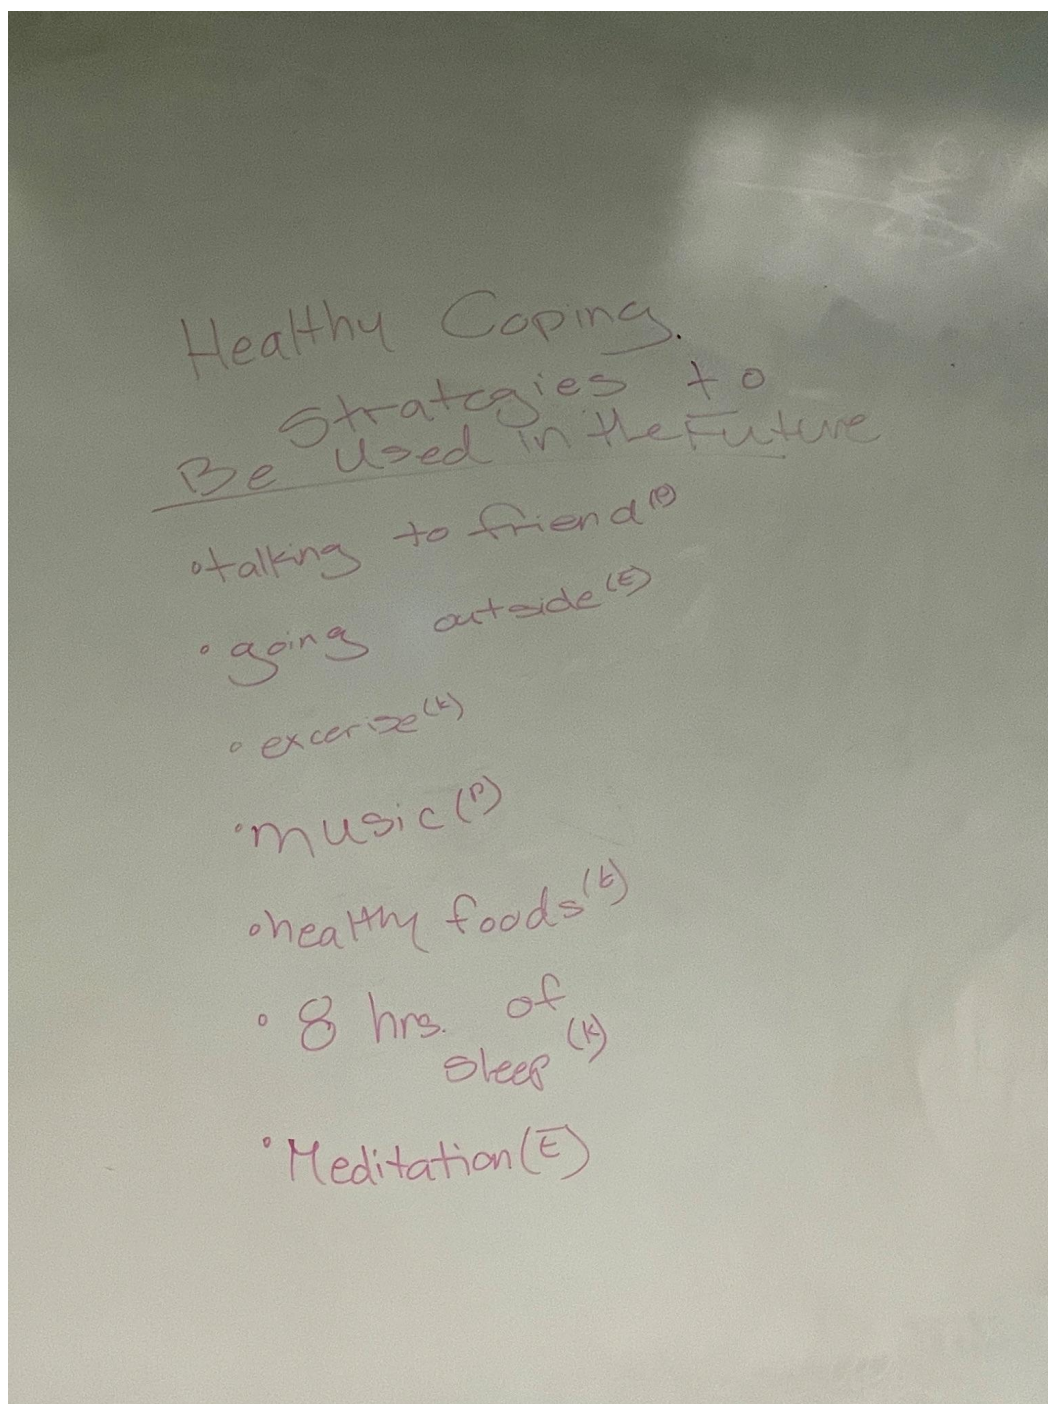 Healthy Coping
Strategies to
Be Used in the Future
• talking to friend (P)
• going outside (E)
• excerise (K)
• music (P)
• healthy foods (E)
• 8 hrs. of
sleep (K)
• Meditation (E)